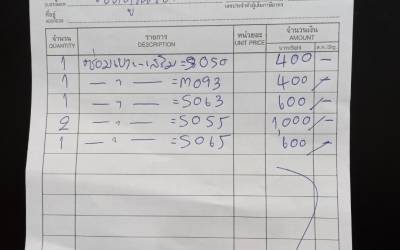 CUSTOMER
ที่อยู่
ADDRESS
เลขประจำตัวผู้เสียภาษีอากร
จำนวน รายการ หน่วยละ จำนวนเงิน
QUANTITY DESCRIPTION UNIT PRICE AMOUNT
1 ซ่อมเบาะ-เสริม = S050 400 -
1 — " — = M093 400 -
1 — " — = S063 600 -
2 — " — = S055 1,000 -
1 — " — = S065 600 -